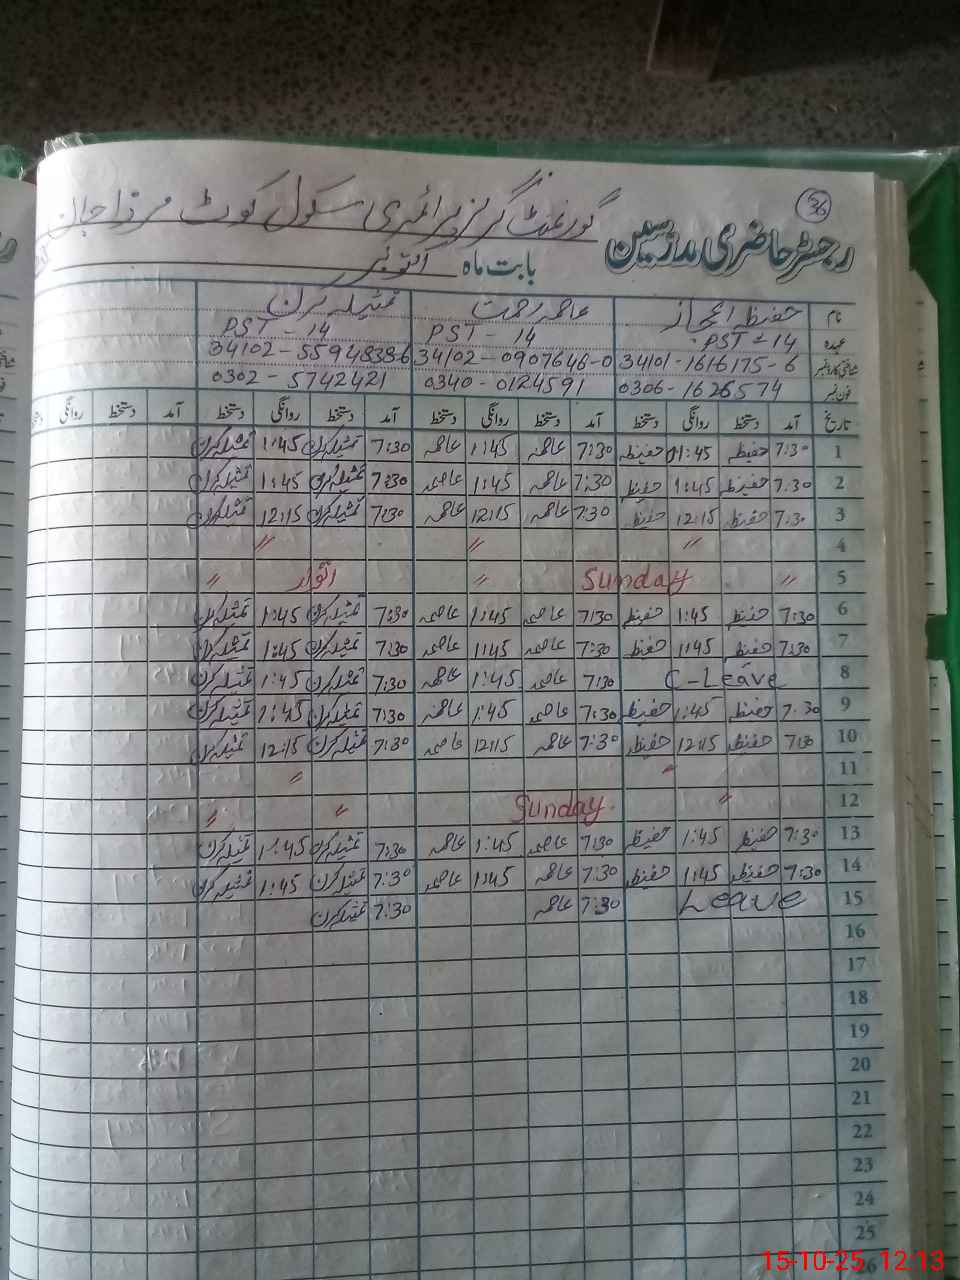 36
رجسٹر حاضری مدرسین گورنمنٹ گرلز پرائمری سکول کوٹ مرزا جان
بابت ماہ اکتوبر
نام حفیظہ اعجاز عاصمہ رحمت تمثیلہ کرن
عہدہ PST-14 PST-14 PST-14
شناختی کارڈ نمبر 34101-1616175-6 34102-0907646-0 34102-5594838-6
فون نمبر 0306-1626574 0340-0124591 0302-5742421
تاریخ آمد دستخط روانگی دستخط آمد دستخط روانگی دستخط آمد دستخط روانگی دستخط آمد دستخط روانگی دستخط
1 7:30 حفیظہ 1:45 حفیظہ 7:30 عاصمہ 1:45 عاصمہ 7:30 تمثیلہ کرن 1:45 تمثیلہ کرن
2 7:30 حفیظہ 1:45 حفیظہ 7:30 عاصمہ 1:45 عاصمہ 7:30 تمثیلہ کرن 1:45 تمثیلہ کرن
3 7:30 حفیظہ 12:15 حفیظہ 7:30 عاصمہ 12:15 عاصمہ 7:30 تمثیلہ کرن 12:15 تمثیلہ کرن
4 〃 〃 〃
5 〃 Sunday 〃 اتوار 〃
6 7:30 حفیظہ 1:45 حفیظہ 7:30 عاصمہ 1:45 عاصمہ 7:30 تمثیلہ کرن 1:45 تمثیلہ کرن
7 7:30 حفیظہ 1:45 حفیظہ 7:30 عاصمہ 1:45 عاصمہ 7:30 تمثیلہ کرن 1:45 تمثیلہ کرن
8 C-Leave 7:30 عاصمہ 1:45 عاصمہ 7:30 تمثیلہ کرن 1:45 تمثیلہ کرن
9 7:30 حفیظہ 1:45 حفیظہ 7:30 عاصمہ 1:45 عاصمہ 7:30 تمثیلہ کرن 1:45 تمثیلہ کرن
10 7:30 حفیظہ 12:15 حفیظہ 7:30 عاصمہ 12:15 عاصمہ 7:30 تمثیلہ کرن 12:15 تمثیلہ کرن
11 〃 〃
12 〃 Sunday 〃 〃
13 7:30 حفیظہ 1:45 حفیظہ 7:30 عاصمہ 1:45 عاصمہ 7:30 تمثیلہ کرن 1:45 تمثیلہ کرن
14 7:30 حفیظہ 1:45 حفیظہ 7:30 عاصمہ 1:45 عاصمہ 7:30 تمثیلہ کرن 1:45 تمثیلہ کرن
15 Leave 7:30 عاصمہ 7:30 تمثیلہ کرن
16
17
18
19
20
21
22
23
24
25
26
15-10-25 12:13